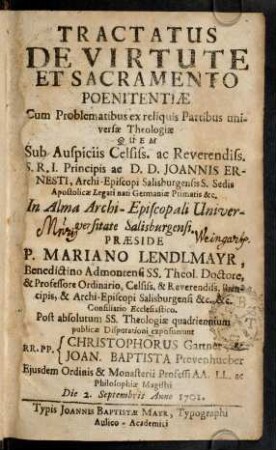 TRACTATUS
DE VIRTUTE
ET SACRAMENTO
POENITENTIÆ
Cum Problematibus ex reliquis Partibus uni-
versæ Theologiæ
QUEM
Sub Auspiciis Celsiss. ac Reverendiss.
S. R. I. Principis ac D. D. JOANNIS ER-
NESTI, Archi-Episcopi Salisburgensis S. Sedis
Apostolicæ Legati nati Germaniæ Primatis &c.
In Alma Archi-Episcopali Univer-
versitate Salisburgensi,
PRÆSIDE
P. MARIANO LENDLMAYR,
Benedictino Admontensi SS. Theol. Doctore,
& Professore Ordinario, Celsiss. & Reverendiss. Prin-
cipis, & Archi-Episcopi Salisburgensi &c. &c.
Consiliario Ecclesiastico.
Post absolutum SS. Theologiæ quadriennium
publicæ Disputationi exposuerunt
RR. PP. CHRISTOPHORUS Gartner &
JOAN. BAPTISTA Prevenhueber
Ejusdem Ordinis & Monasterii Professi AA. LL. &
Philosophiæ Magistri
Die 2. Septembris Anno 1702.
Typis JOANNIS BAPTISTÆ MAYR, Typographi
Aulico-Academici